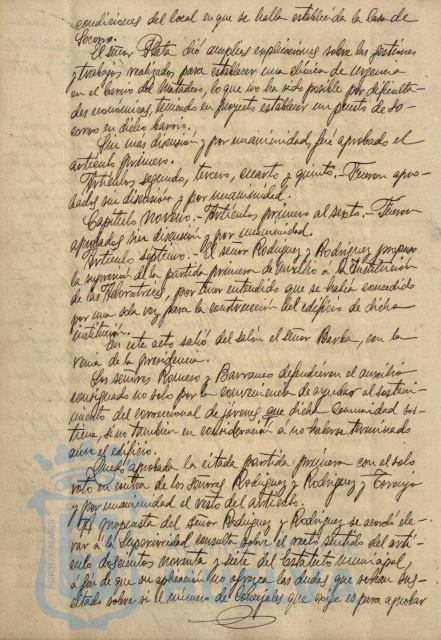 condiciones del local en que se halla establecida la Casa de
Socorro.
El señor Plata dió amplias explicaciones sobre las gestiones
y trabajos realizados para establecer una clínica de urgencia
en el barrio del Matadero, lo que no ha sido posible por dificulta-
des económicas, teniendo en proyecto establecer un puesto de so-
corro en dicho barrio.
Sin mas discusion y por unanimidad, fué aprobado el
artículo primero.
Artículos segundo, tercero, cuarto y quinto.- Fueron apro-
bados sin discusión y por unanimidad.
Capítulo noveno.- Artículos primero al sexto.- Fueron
aprobados sin discusión y por unanimidad.
Artículo septimo.- El señor Rodriguez y Rodriguez propuso
la supresión de la partida primera de auxilio a la Institución
de las Adoratrices, por tener entendido que se había concedido
por una sola vez para la construcción del edificio de dicha
institución.
En este acto salió del salón el señor Barba, con la
venia de la presidencia.
Los señores Romero y Barranco defendieron el auxilio
consignado no solo por la conveniencia de ayudar al sosteni-
miento del correccional de jóvenes que dicha Comunidad sos-
tiene, si no tambien en consideración a no haberse terminado
aun el edificio.
Quedó aprobada la citada partida primera con el solo
voto en contra de los señores Rodriguez y Rodriguez y
y por unanimidad el resto del artículo.
A propuesta del señor Rodriguez y Rodriguez se acordó ele-
var á la Superioridad consulta sobre el recto sentido del artí-
culo doscientos noventa y siete del Estatuto Municipal,
a fin de que su aplicación no ofrezca las dudas que se han sus-
citado sobre si el número de Concejales que exige es para aprobar
PORTUS MARIS